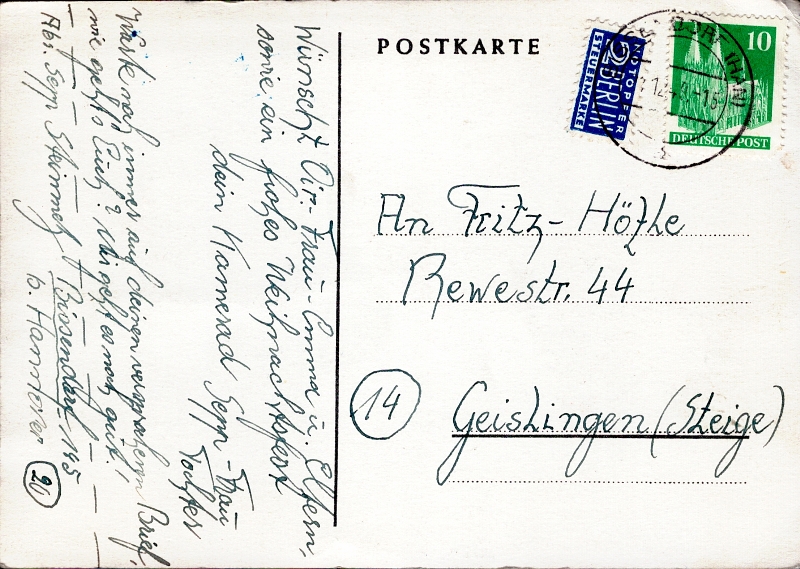 POSTKARTE
NOTOPFER
2 BERLIN
STEUERMARKE
10
DEUTSCHE POST
An Fritz-Höfle
Rewestr. 44
14
Geislingen (Steige)
Wünscht Dir.-Frau-Emma u. Eltern,
sowie, ein frohes Weihnachtsfest
dein Kamerad Sepp-Frau
Tochter
Warte noch immer auf deinen versprochenen Brief,
wie geht's Euch? Mir geht es noch gut!
Abs. Sepp Steinmetz Bissendorf 195
b. Hannover
20